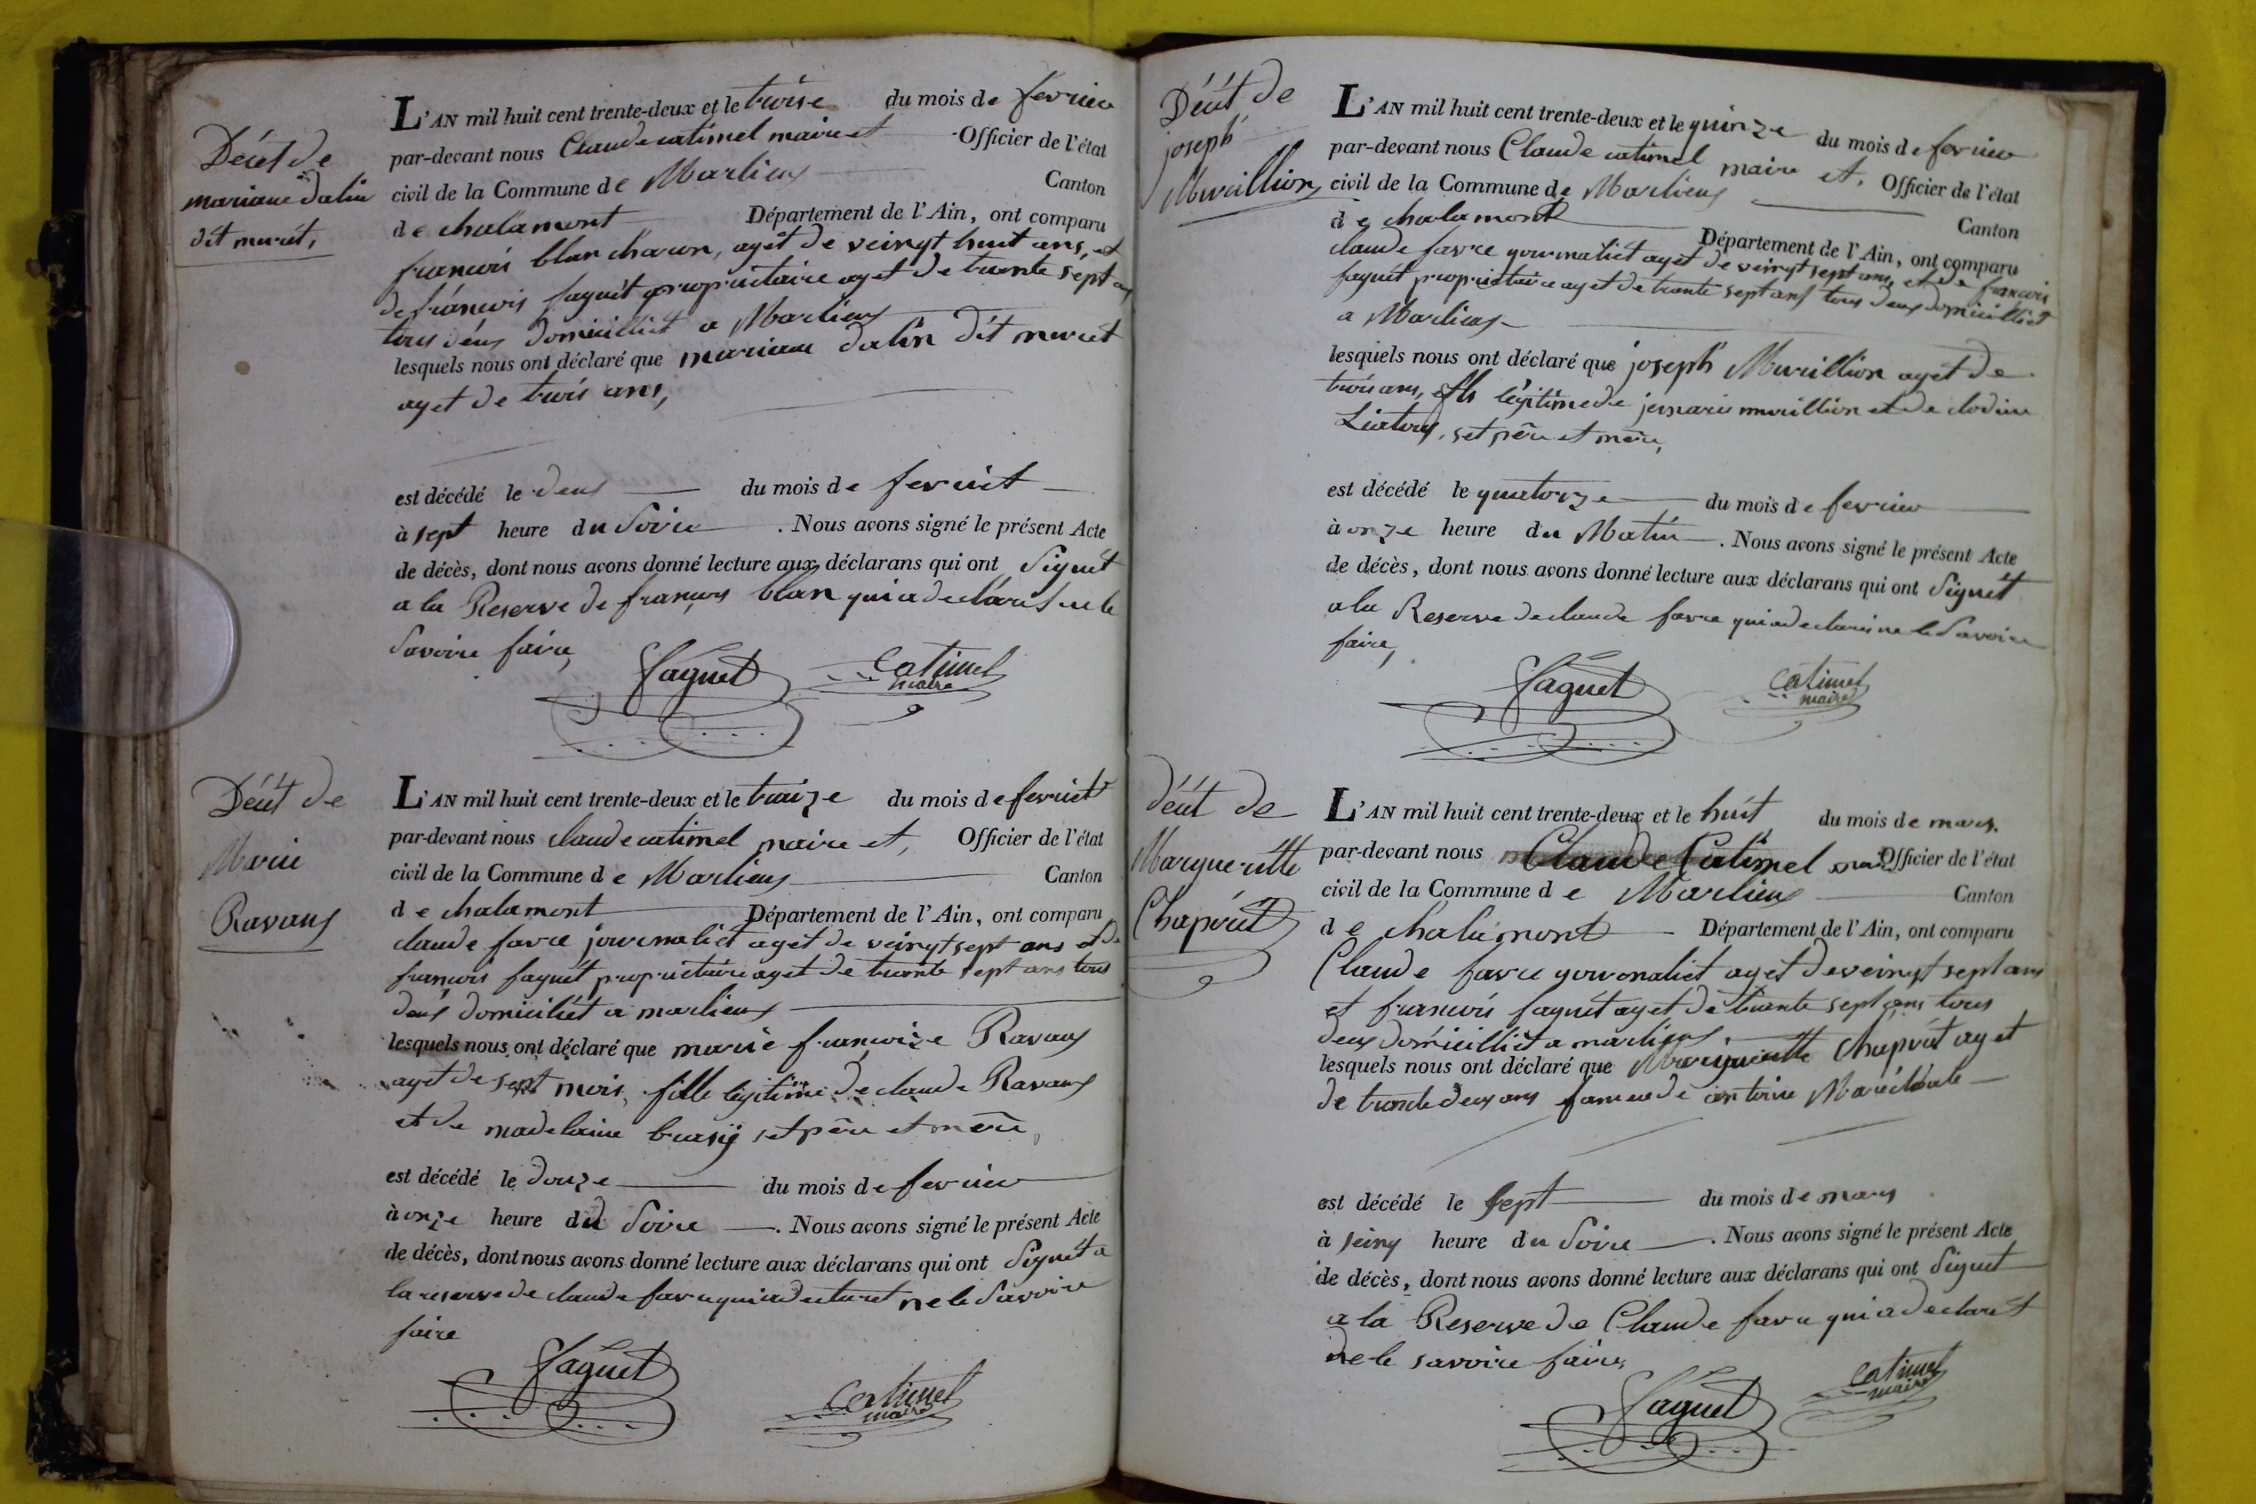 Décét de
mariane dalin
dit murét,
L'AN mil huit cent trente-deux et le trois du mois de fevrier
par-devant nous Claude catimel maire et Officier de l'état
civil de la Commune de Marlieux Canton
de chalamont Département de l'Ain, ont comparu
francois blan charon, agét de veingt huit ans, et
de francois faguét propriétaire aget de trante sept ans
tous deus domicilliét a Marlieux
lesquels nous ont déclaré que mariane dalin dit murét
aget de trois ans,
est décédé le deus du mois de fevriét
à sept heure du Soire . Nous avons signé le présent Acte
de décès, dont nous avons donné lecture aux déclarans qui ont Signét
a la Reserve de francois blan qui a declaré ne le
Savoire faire,
faguet Catimel
maire
Décét de
Marie
Ravaux
L'AN mil huit cent trente-deux et le traize du mois de fevriét
par-devant nous claude catimel maire et, Officier de l'état
civil de la Commune de Marlieux Canton
de chalamont Département de l'Ain, ont comparu
claude favre journaliét agét de veingt sept ans et de
francois faguét propriétaire aget de trante sept ans tous
deus domiciliét a marlieux
lesquels nous ont déclaré que marie francoise Ravaux
aget de sept mois, fille légitime de claude Ravaux
et de madelaine set père et mère,
est décédé le douze du mois de fevrier
à onze heure du Soire . Nous avons signé le présent Acte
de décès, dont nous avons donné lecture aux déclarans qui ont Signét a
la reserve de claude favre qui a declaret ne le Savoire
faire
faguet Catimel
maire
Décét de
joseph
Murillion
L'AN mil huit cent trente-deux et le quinze du mois de fevrier
par-devant nous Claude catimel maire et, Officier de l'état
civil de la Commune de Marlieux Canton
de chalamont Département de l'Ain, ont comparu
claude favre gournaliét agét de veingt sept ans et de francois
faguét propriétaire aget de trante sept ans tous deus domicilliét
a Marlieux
lesquels nous ont déclaré que joseph Murillion agét de
trois ans, fils légitime de murillion et de clodine
set père et mère,
est décédé le quatorze du mois de fevrier
à onze heure du Matin . Nous avons signé le présent Acte
de décès, dont nous avons donné lecture aux déclarans qui ont Signét
a la Reserve de claude favre qui a declaré ne le Savoire
faire,
faguet Catimel
maire
Décét de
Margueritte
Chapuit
L'AN mil huit cent trente-deux et le huit du mois de mars
par-devant nous Claude Catimel maire Officier de l'état
civil de la Commune de Marlieux Canton
de chalamont Département de l'Ain, ont comparu
Claude favre gournaliét agét de veingt sept ans
et francois faguét aget de trante sept ans tous
deus domicilliét a marlieux,
lesquels nous ont déclaré que Margueritte Chapuit aget
de trante deus ans famme de antoine Maréchale
est décédé le sept du mois de mars
à seinq heure du Soire . Nous avons signé le présent Acte
de décès, dont nous avons donné lecture aux déclarans qui ont Signet
a la Reserve de Claude favre qui a declarét
ne le savoire faire,
faguet Catimel
maire